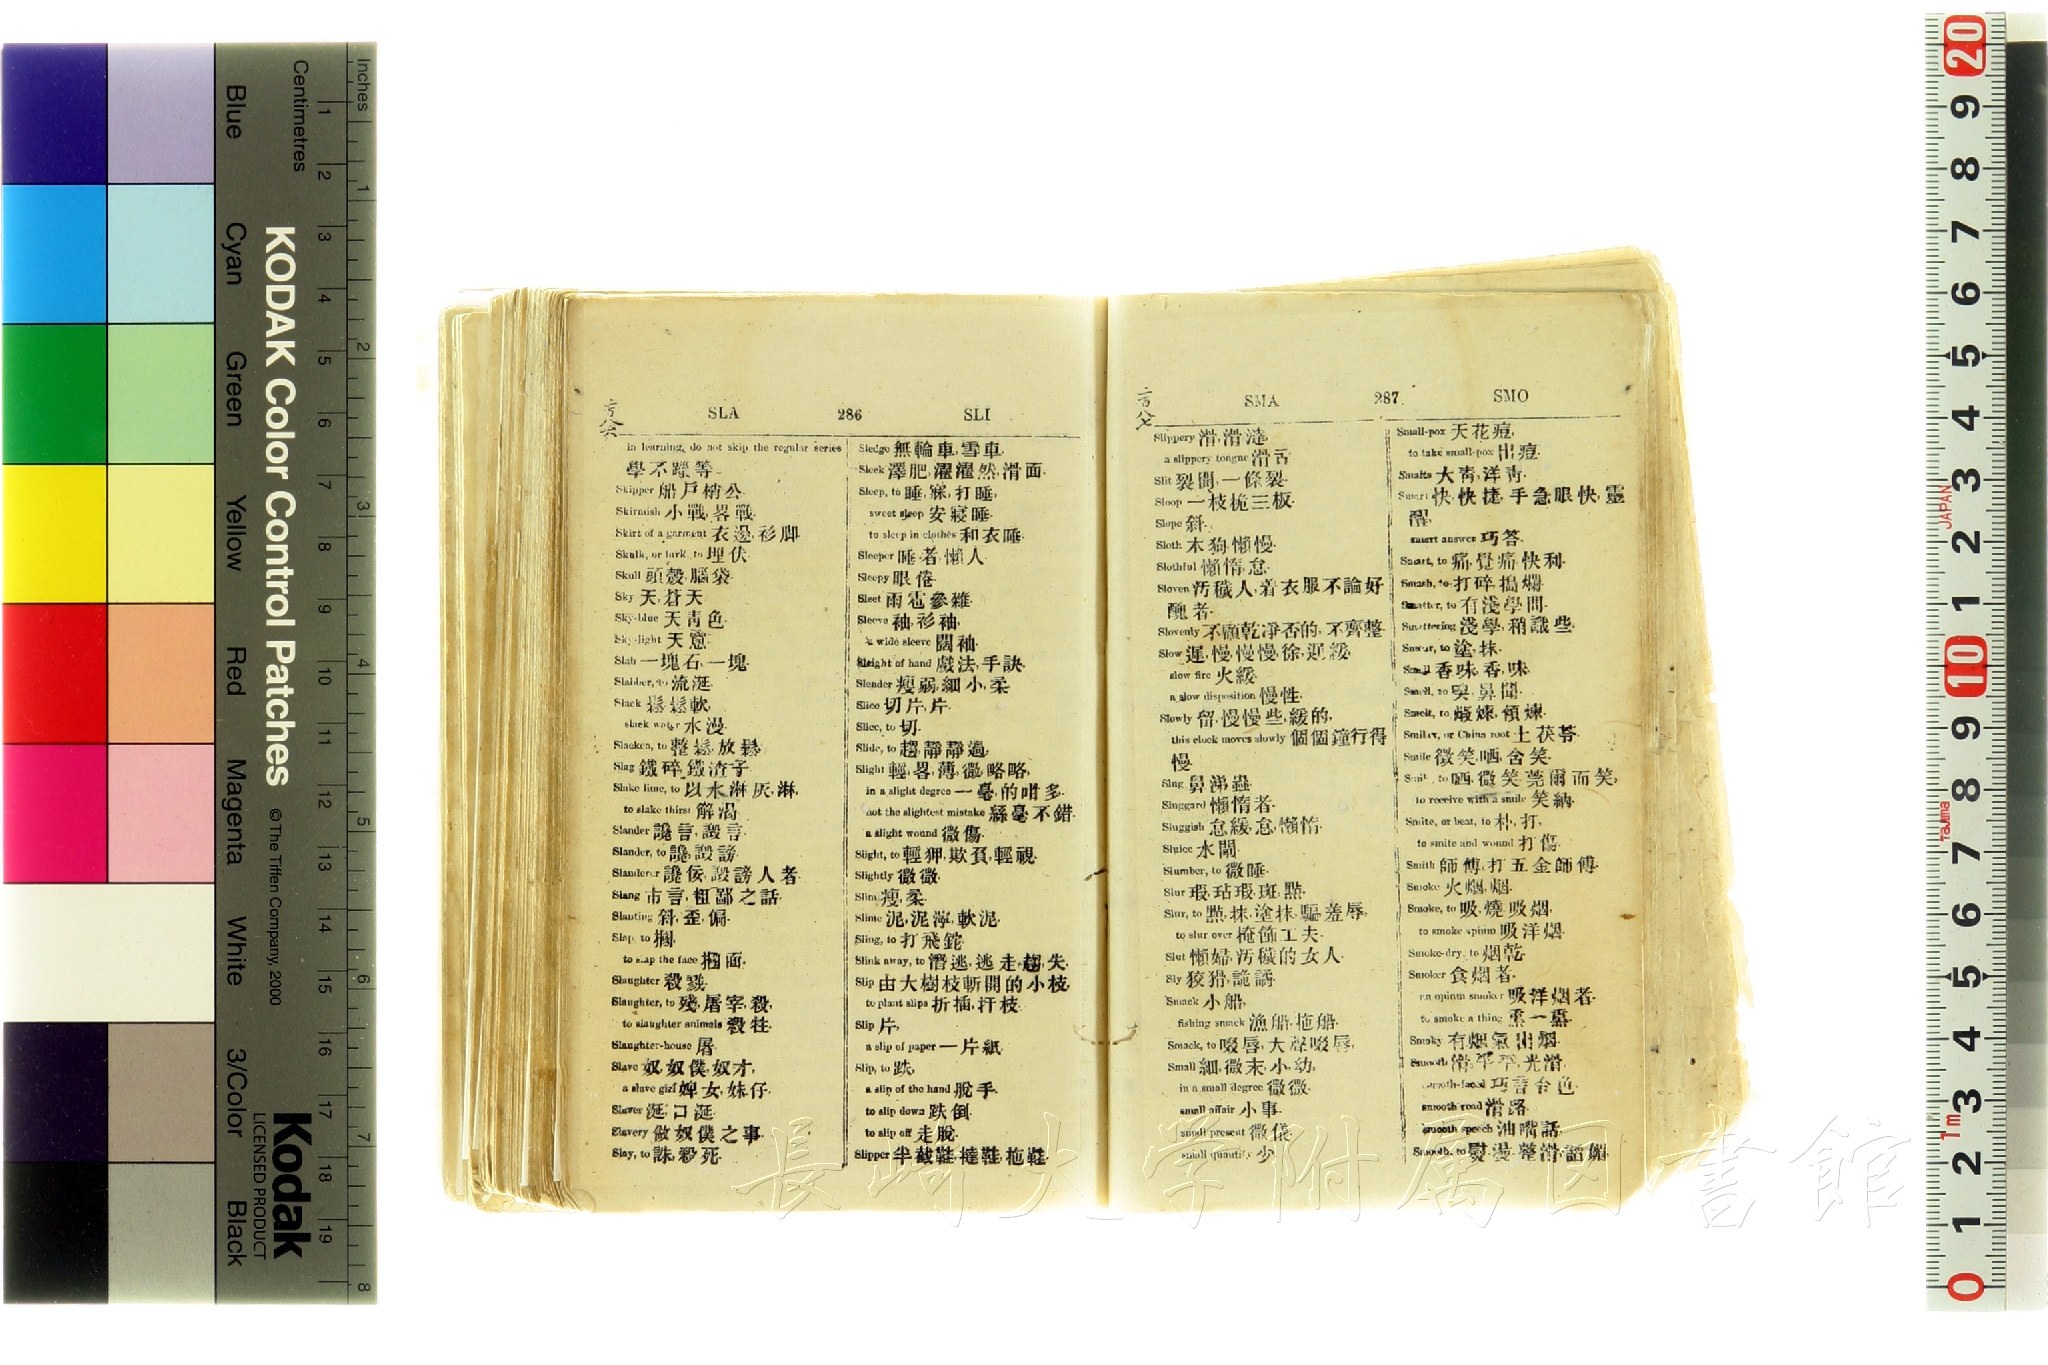 SLA 286 SLI
in learning, do not skip the regular series
學不躐等
Skipper 船戶梢公
Skirmish 小戰,畧戰
Skirt of a garment 衣邊,衫脚
Skulk, or lurk, to 埋伏
Skull 頭殼,腦袋
Sky 天,蒼天
Sky-blue 天靑色
Sky-light 天窻
Slab 一塊石,一塊
Slabber, to 流涎
Slack 鬆,鬆軟
slack water 水漫
Slacken, to 整鬆,放鬆
Slag 鐵碎,鐵渣子
Slake lime, to 以水淋灰,淋
to slake thirst 解渴
Slander 讒言,譭言
Slander, to 讒,譭謗
Slanderer 讒佞,譭謗人者
Slang 市言,粗鄙之話
Slanting 斜,歪,偏
Slap, to 摑
to slap the face 摑面
Slaughter 殺戮
Slaughter, to 殘,屠宰,殺
to slaughter animals 殺牲
Slaughter-house 屠
Slave 奴,奴僕,奴才
a slave girl 婢女,妹仔
Slaver 涎,口涎
Slavery 做奴僕之事
Slay, to 誅,殺死
Sledge 無輪車,雪車
Sleek 澤肥,濯濯然,滑面
Sleep, to 睡,寐,打睡
sweet sleep 安寢睡
to sleep in clothes 和衣睡
Sleeper 睡者,懶人
Sleepy 眼倦
Sleet 雨雹參雜
Sleeve 袖,衫袖
a wide sleeve 闊袖
Sleight of hand 戲法,手訣
Slender 瘦弱,細小,柔
Slice 切片,片
Slice, to 切
Slide, to 趨,靜靜過
Slight 輕,畧,薄,微,略略
in a slight degree 一毫,的咁多
not the slightest mistake 絲毫不錯
a slight wound 微傷
Slight, to 輕狎,欺負,輕視
Slightly 微微
Slim 瘦,柔
Slime 泥,泥濘,軟泥
Sling, to 打飛鉈
Slink away, to 潛逃,逃走,趨失
Slip 由大樹枝斬開的小枝
to plant slips 折插,扦枝
Slip 片
a slip of paper 一片紙
Slip, to 跌
a slip of the hand 脫手
to slip down 跌倒
to slip off 走脫
Slipper 半截鞋,撻鞋,拖鞋
SMA 287 SMO
Slippery 滑,滑溚
a slippery tongue 滑舌
Slit 裂開,一條裂
Sloop 一枝桅三板
Slope 斜
Sloth 木狗,懶慢
Slothful 懶惰,怠
Sloven 汚穢人,着衣服不論好
醜者
Slovenly 不顧乾凈否的,不齊整
Slow 遲,慢,慢慢,徐,遲緩
slow fire 火緩
a slow disposition 慢性
Slowly 留,慢慢些,緩的
this clock moves slowly 個個鐘行得
慢
Slug 鼻涕蟲
Sluggard 懶惰者
Sluggish 怠緩,怠,懶惰
Sluice 水閘
Slumber, to 微睡
Slur 瑕,玷,瑕,斑,點
Slur, to 點,抹,塗抹,騙,羞辱
to slur over 掩飾工夫
Slut 懶婦,汚穢的女人
Sly 狡猾,詭譎
Smack 小船
fishing smack 漁船,拖船
Smack, to 啜唇,大聲啜唇
Small 細,微,末,小,幼
in a small degree 微微
small affair 小事
small present 微儀
small quantity 少
Small-pox 天花痘
to take small-pox 出痘
Smalts 大靑,洋靑
Smart 快,快捷,手急眼快,靈
醒
smart answer 巧答
Smart, to 痛,覺痛,快利
Smash, to 打碎,搗爛
Smatter, to 有淺學問
Smattering 淺學,稍識些
Smear, to 塗,抹
Smell 香味,香,味
Smell, to 臭,鼻聞
Smelt, to 煅煉,傾煉
Smilax, or China root 土茯苓
Smile 微笑,哂,含笑
Smile, to 哂,微笑,莞爾而笑
to receive with a smile 笑納
Smite, or beat, to 朴,打
to smite and wound 打傷
Smith 師傅,打五金師傅
Smoke 火烟,烟
Smoke, to 吸,燒,吸烟
to smoke opium 吸洋烟
Smoke-dry, to 烟乾
Smoker 食烟者
an opium smoker 吸洋烟者
to smoke a thing 熏一熏
Smoky 有烟氣,出烟
Smooth 滑,平,平,光滑
smooth-faced 巧言令色
smooth road 滑路
smooth speech 油嘴話
Smooth, to 熨,燙,整滑,諂媚
長崎大学附属図書館
Inches
Centimetres
KODAK Color Control Patches © The Tiffen Company, 2000
Kodak
LICENSED PRODUCT
Blue
Cyan
Green
Yellow
Red
Magenta
White
3/Color
Black
JAPAN
Tajima
1m